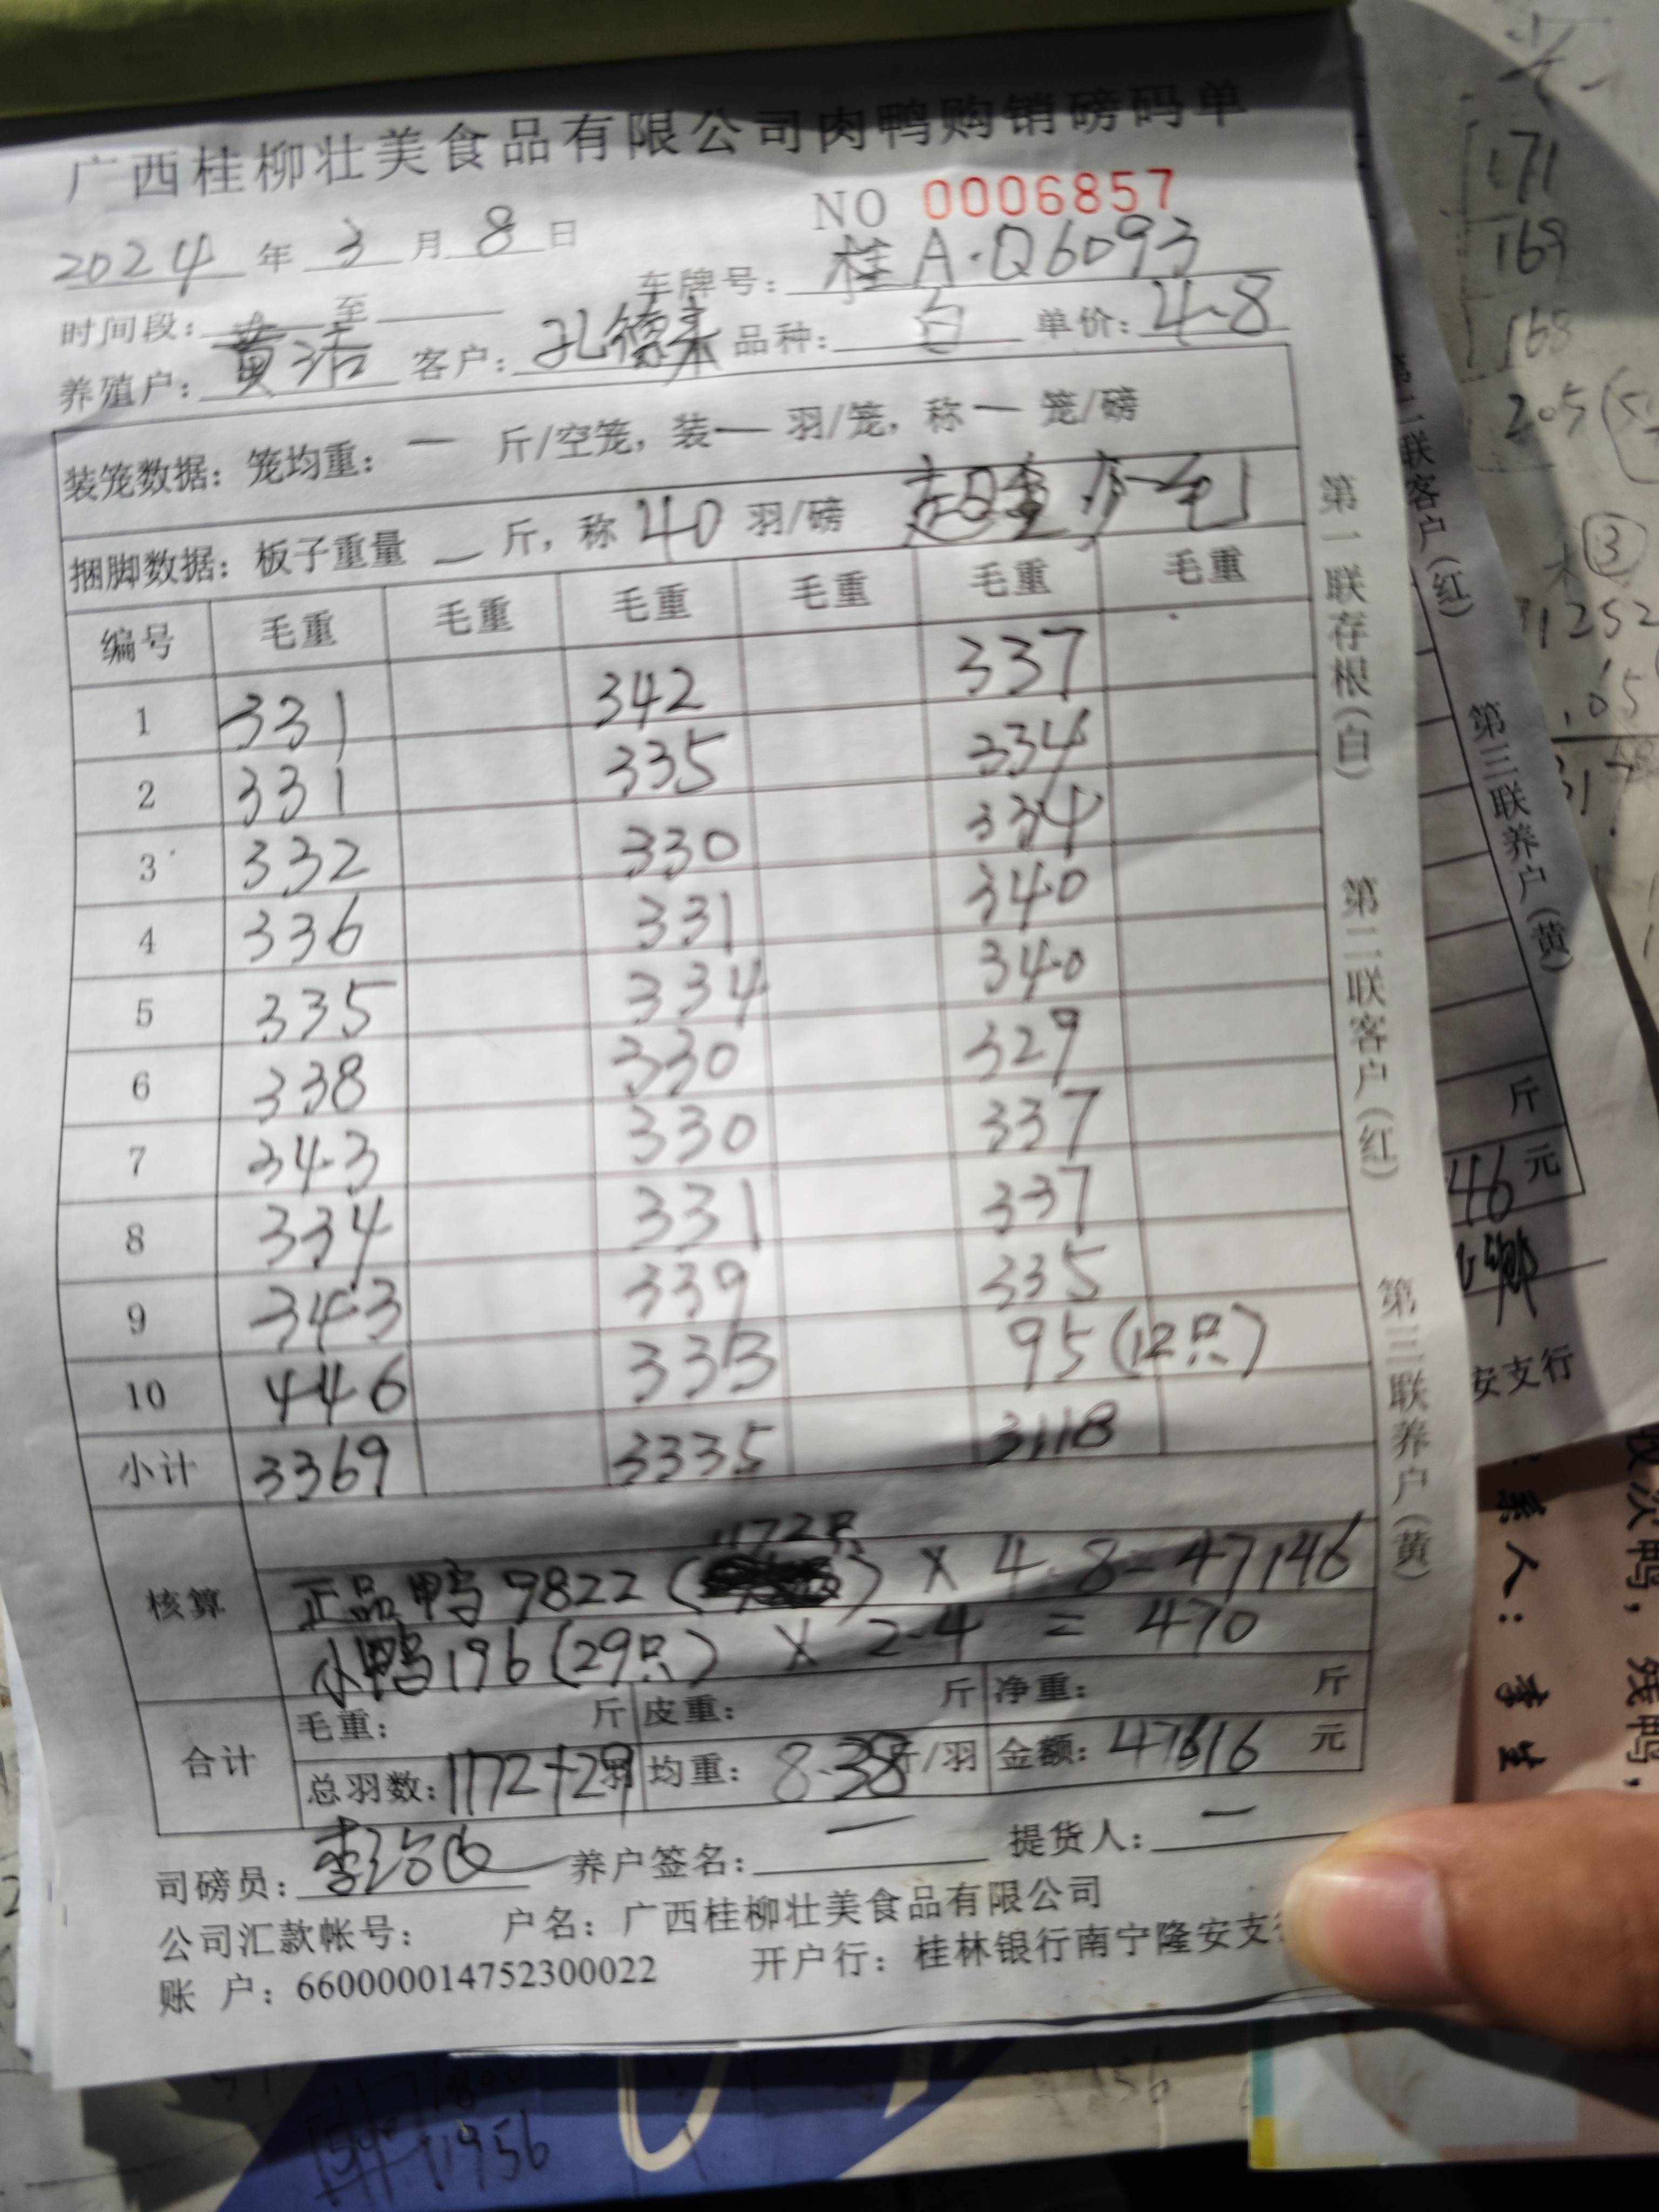 广西桂柳壮美食品有限公司肉鸭购销磅码单
NO 0006857
2024年3月8日
车牌号：桂A·Q6093
时间段：至
养殖户：黄洁 客户：孔德来 品种：白 单价：4.8
装笼数据：笼均重：一斤/空笼，装一羽/笼，称一笼/磅
捆脚数据：板子重量一斤，称40羽/磅
编号 毛重 毛重 毛重 毛重 毛重 毛重
1 331 342 337
2 331 335 334
3 332 330 334
4 336 331 340
5 335 334 340
6 338 330 329
7 343 330 337
8 334 331 337
9 343 339 335
10 446 333 95(12只)
小计 3369 3335 3118
核算
1172只
正品鸭9822( )×4.8=47146
小鸭196(29只)×2.4=470
合计
毛重： 斤 皮重： 斤 净重： 斤
总羽数：1172+29羽 均重：8.38斤/羽 金额：47616元
司磅员： 养户签名：一 提货人：一
公司汇款帐号： 户名：广西桂柳壮美食品有限公司
账 户：660000014752300022 开户行：桂林银行南宁隆安支
第一联存根(白) 第二联客户(红) 第三联养户(黄)
第二联客户(红) 第三联养户(黄)
斤
46元
安支行
171
169
168
205
③
1252
1956